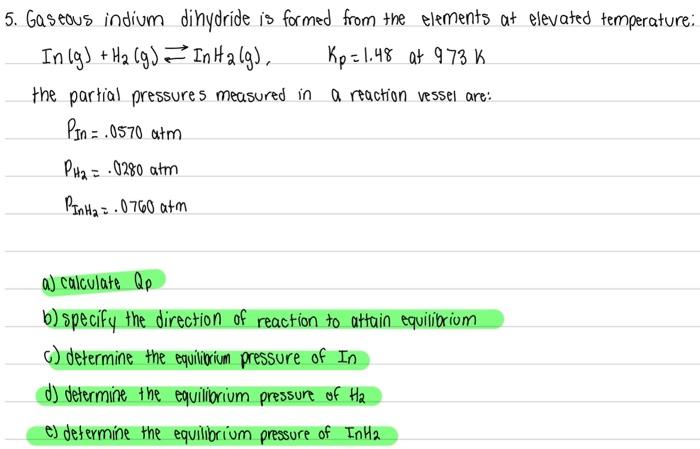 5. Gaseous indium dihydride is formed from the elements at elevated temperature:
In(g) + H2(g) ⇌ InH2(g), Kp = 1.48 at 973 K
the partial pressures measured in a reaction vessel are:
PIn = .0570 atm
PH2 = .0280 atm
PInH2 = .0760 atm
a) calculate Qp
b) specify the direction of reaction to attain equilibrium
c) determine the equilibrium pressure of In
d) determine the equilibrium pressure of H2
e) determine the equilibrium pressure of InH2